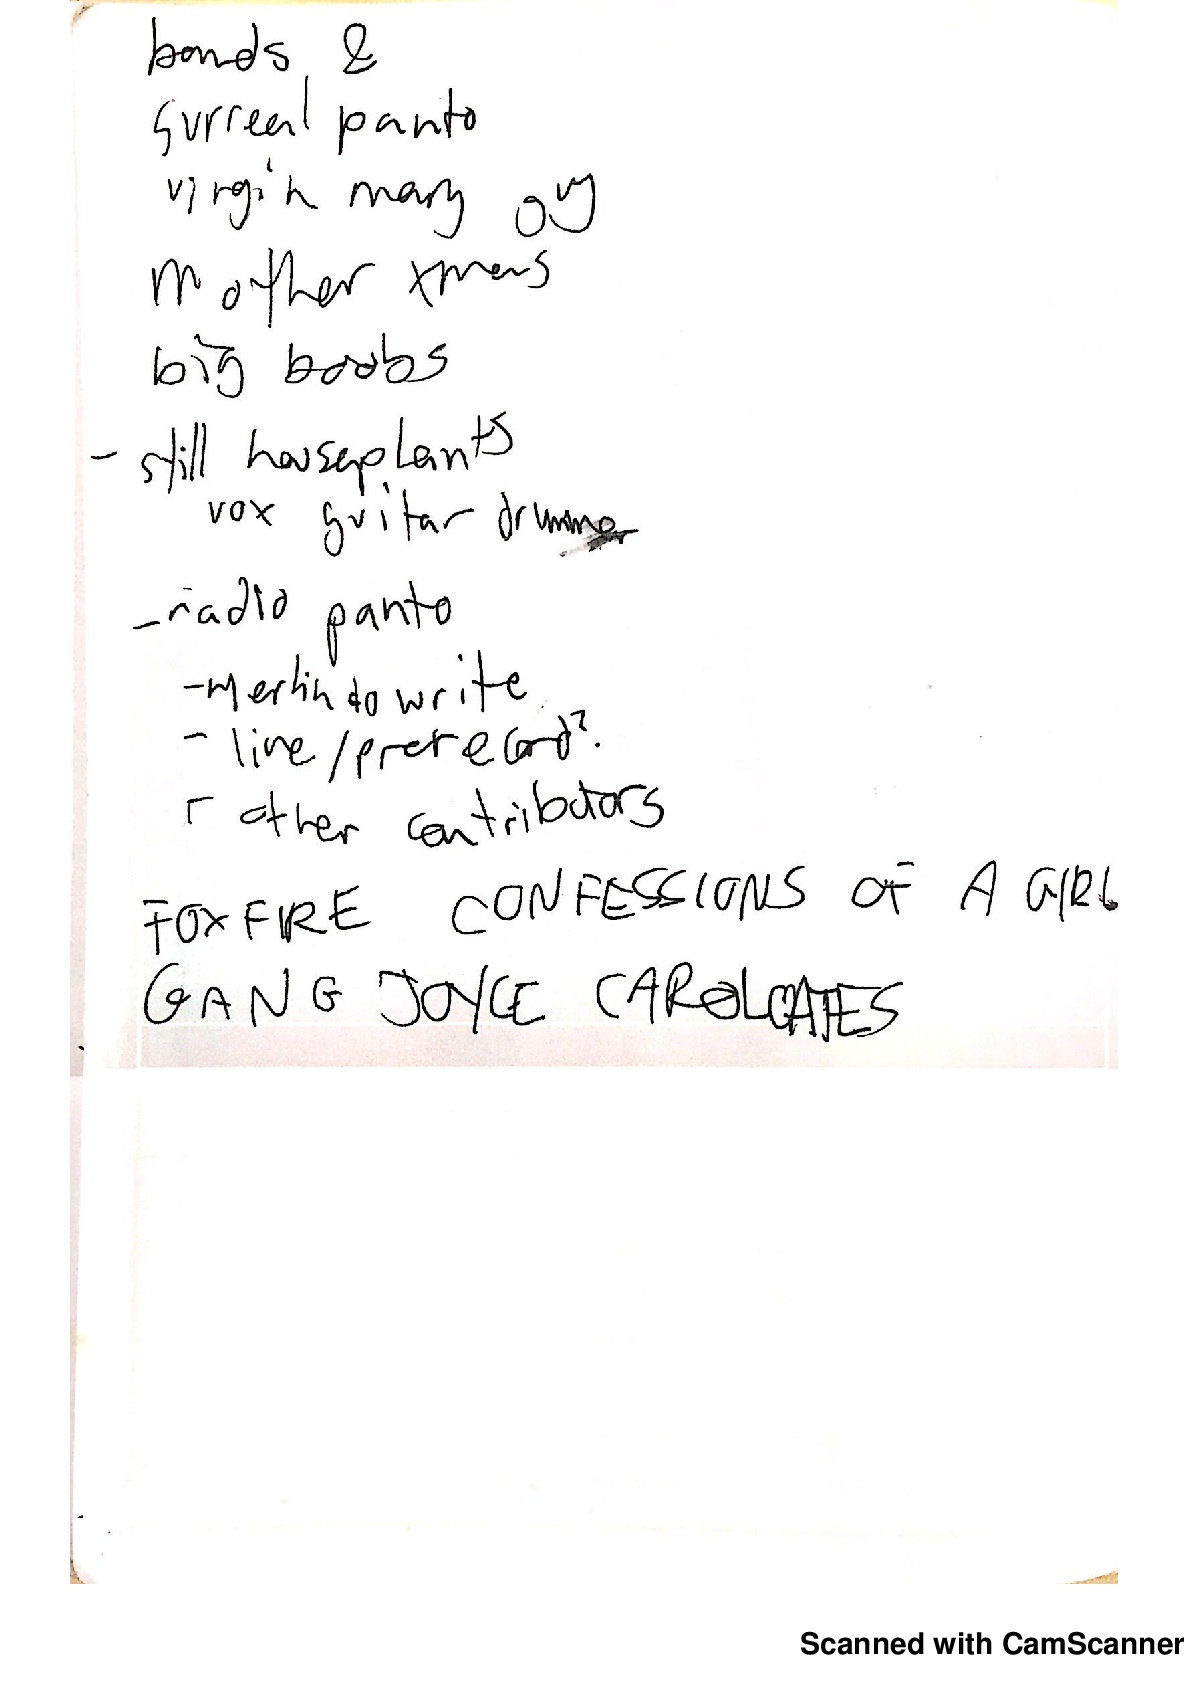 bands &
surreal panto
virgin mary
mother xmas
big boobs
- still houseplants
vox guitar drummer
- radio panto
- merlin to write
- live / prerecord?
- other contributors
FOXFIRE CONFESSIONS OF A GIRL
GANG JOYCE CAROL OATES
Scanned with CamScanner